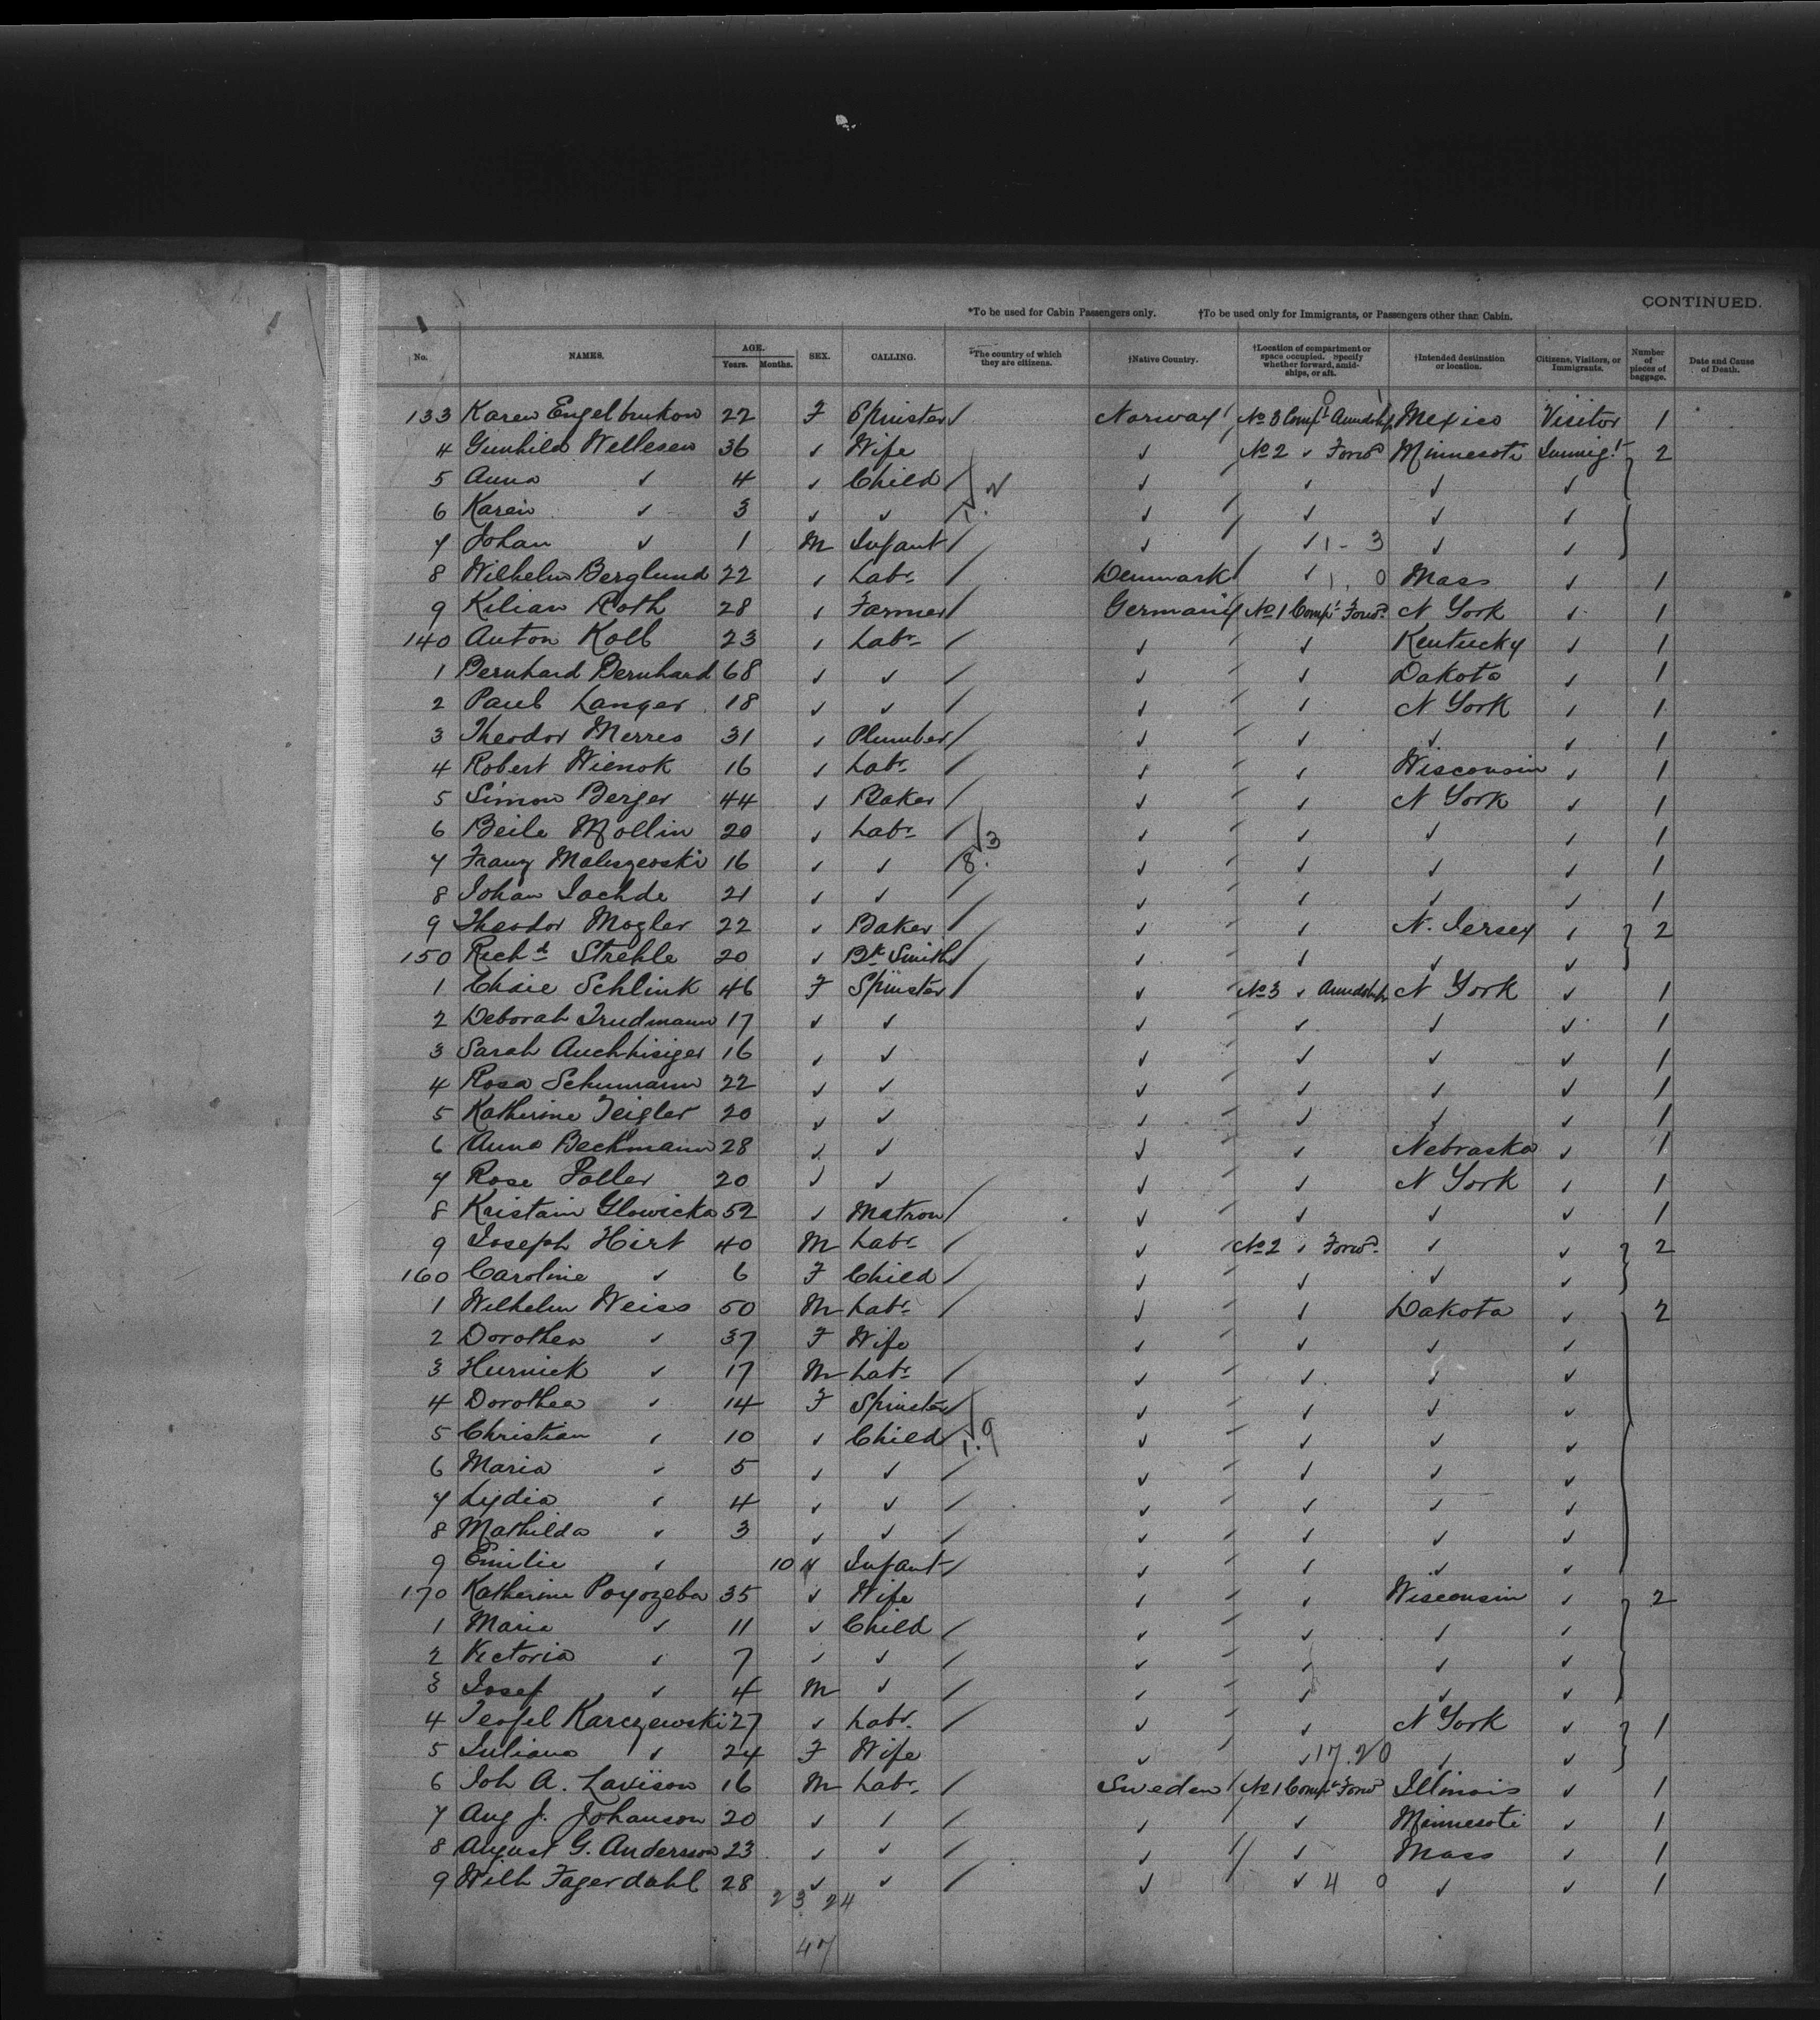 CONTINUED.
*To be used for Cabin Passengers only. †To be used only for Immigrants, or Passengers other than Cabin.
No. NAMES. AGE. Years. Months. SEX. CALLING. *The country of which they are citizens. †Native Country. †Location of compartment or space occupied. Specify whether forward, amidships, or aft. †Intended destination or location. Citizens, Visitors, or Immigrants. Number of pieces of baggage. Date and Cause of Death.
133 Karen 22 F Spinster Norway No 3 Compt Amidships Mexico Visitor 1
4 Gunhild Wellesen 36 ✓ Wife ✓ No 2 ✓ Forwd Minnesoti Immigt 2
5 Anna ✓ 4 ✓ Child ✓ ✓ ✓ ✓
6 Karen ✓ 3 ✓ ✓ ✓ ✓ ✓ ✓
7 Johan ✓ 1 M Infant ✓ ✓ 1 - 3 ✓ ✓
8 Wilhelm Berglund 22 ✓ Labr Denmark ✓ 1. 0 Mass ✓ 1
9 Kilian Roth 28 ✓ Farmer Germany No 1 Compt Forwd N York ✓ 1
140 Anton Koll 23 ✓ Labr ✓ ✓ Kentucky ✓ 1
1 Bernhard Bernhard 68 ✓ ✓ ✓ ✓ Dakota ✓ 1
2 Paul Langer 18 ✓ ✓ ✓ ✓ N York ✓ 1
3 Theodor Merres 31 ✓ Plumber ✓ ✓ ✓ ✓ 1
4 Robert Wienok 16 ✓ Labr ✓ ✓ Wisconsin ✓ 1
5 Simon Berger 44 ✓ Baker ✓ ✓ N York ✓ 1
6 Beile Mollin 20 ✓ Labr ✓ ✓ ✓ ✓ 1
7 Franz Maliszewski 16 ✓ ✓ ✓ ✓ ✓ ✓ 1
8 Johan Jachde 21 ✓ ✓ ✓ ✓ ✓ ✓ 1
9 Theodor Mogler 22 ✓ Baker ✓ ✓ N. Jersey ✓ 2
150 Richd Strehle 20 ✓ Bk Smith ✓ ✓ ✓ ✓
1 Chaie Schlink 46 F Spinster ✓ No 3 ✓ Amidships N York ✓ 1
2 Deborah Trudmann 17 ✓ ✓ ✓ ✓ ✓ ✓ 1
3 Sarah 16 ✓ ✓ ✓ ✓ ✓ ✓ 1
4 Rosa Schumann 22 ✓ ✓ ✓ ✓ ✓ ✓ 1
5 Katherine Zeigler 20 ✓ ✓ ✓ ✓ ✓ ✓ 1
6 Anna Beckmann 28 ✓ ✓ ✓ ✓ Nebraska ✓ 1
7 Rose Faller 20 ✓ ✓ ✓ ✓ N York ✓ 1
8 Kristain Glowicka 52 ✓ Matron ✓ ✓ ✓ ✓ 1
9 Joseph Hirt 40 M Labr ✓ No 2 ✓ Forwd ✓ ✓ 2
160 Caroline ✓ 6 F Child ✓ ✓ ✓ ✓
1 Wilhelm Weiss 50 M Labr ✓ ✓ Dakota ✓ 2
2 Dorothea ✓ 37 F Wife ✓ ✓ ✓ ✓
3 Hurnick ✓ 17 M Labr ✓ ✓ ✓ ✓
4 Dorothea ✓ 14 F Spinster ✓ ✓ ✓ ✓
5 Christian ✓ 10 ✓ Child ✓ ✓ ✓ ✓
6 Maria ✓ 5 ✓ ✓ ✓ ✓ ✓ ✓
7 Lydia ✓ 4 ✓ ✓ ✓ ✓ ✓ ✓
8 Mathilda ✓ 3 ✓ ✓ ✓ ✓ ✓ ✓
9 Emilie ✓ 10 Infant ✓ ✓ ✓ ✓
170 Katherine Poyozeba 35 ✓ Wife ✓ ✓ Wisconsin ✓ 2
1 Marie ✓ 11 ✓ Child ✓ ✓ ✓ ✓
2 Victoria ✓ 7 ✓ ✓ ✓ ✓ ✓ ✓
3 Josef ✓ 4 M ✓ ✓ ✓ ✓ ✓
4 Teofel Karczewski 27 ✓ Labr ✓ ✓ N York ✓ 1
5 Juliana ✓ 24 F Wife ✓ ✓ 17.20 ✓ ✓
6 Joh A. 16 M Labr Sweden No 1 Compt Forwd Illinois ✓ 1
7 Aug J. Johanson 20 ✓ ✓ ✓ ✓ Minnesoti ✓ 1
8 August G. Andersson 23 ✓ ✓ ✓ ✓ Mass ✓ 1
9 Wilh Fagerdahl 28 ✓ ✓ ✓ ✓ 4 0 ✓ ✓ 1
23 24
47